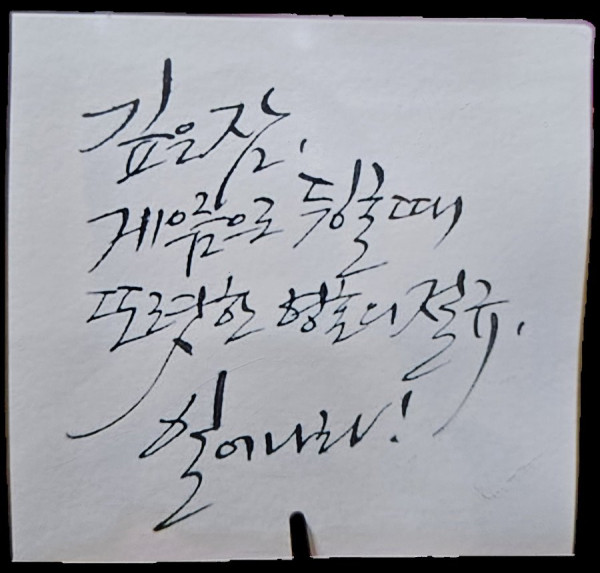 깊은 잠,
게으름으로 뒹굴 때
또렷한 형혼의 절규,
일어나라!